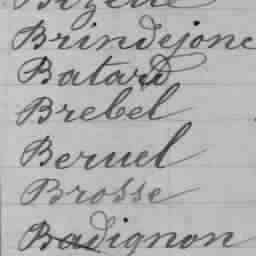 Brindejonc
Batard
Brebel
Beruel
Brosse
Badignon